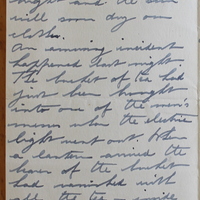 bright and the sun
will soon dry our
clothes.
An amusing incident
happened last night.
The bucket of tea had
just been brought
into one of the men's
messes when the electric
light went out. When
a lantern arrived the
bearer of the bucket
had vanished with
all the tea